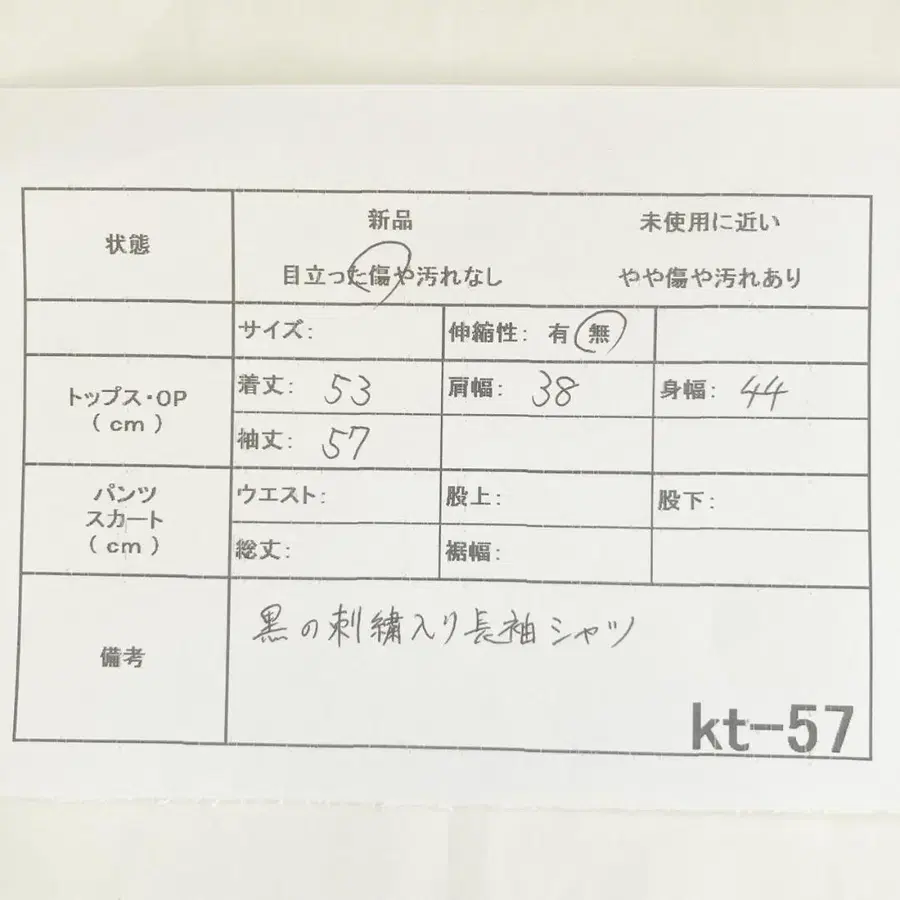 状態
新品 未使用に近い
目立った傷や汚れなし やや傷や汚れあり
サイズ: 伸縮性: 有 無
トップス・OP
( cm )
着丈: 53 肩幅: 38 身幅: 44
袖丈: 57
パンツ
スカート
( cm )
ウエスト: 股上: 股下:
総丈: 裾幅:
備考
黒の刺繍入り長袖シャツ
kt-57